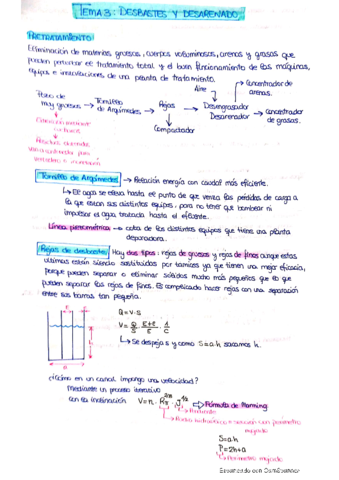 TEMA 3: DESBASTES Y DESARENADO.
PRETRATAMIENTO
Eliminación de materias gruesas, cuerpos voluminosos, arenas y grasas que
pueden perturbar el tratamiento total y el buen funcionamiento de las máquinas,
equipos e instalaciones de una planta de tratamiento.
Aire
Concentrador de
arenas.
Pozo de
muy gruesos → Tornillo
de Arquímedes → Rejas → Desengrasador
Desarenador → Concentrador
de grasas.
Compactador
Extracción mediante
cuchara
vertedero o incineración
Tornillo de Arquímedes → Relación energía con caudal más eficiente.
↳ El agua se eleva hasta el punto de que venza las pérdidas de carga a
lo que están sus distintos equipos, para no tener que bombear ni
impulsar el agua tratada hasta el efluente.
Línea piezométrica → cota de los distintos equipos que tiene una planta
depuradora.
Rejas de desbaste: Hay dos tipos: rejas de gruesos y rejas de finos aunque estas
últimas están siendo sustituidas por tamices ya que tienen una mejor eficacia,
porque pueden separar o eliminar sólidos mucho más pequeños que lo que
pueden separar las rejas de finos. Es complicado hacer rejas con una separación
entre sus barras tan pequeña.
Q = V·S
V = Q/S · E+e/E · 1/C
↳ Se despeja S y como S=a·h sacamos h.
L
¿Cómo en un canal impongo una velocidad?
Mediante un proceso iterativo
con la inclinación V=n·R^2/3·J^1/2 ⇒ Fórmula de Manning
mojado
S=a·h
P=2h+a
↳ Perímetro mojado
Escaneado con CamScanner